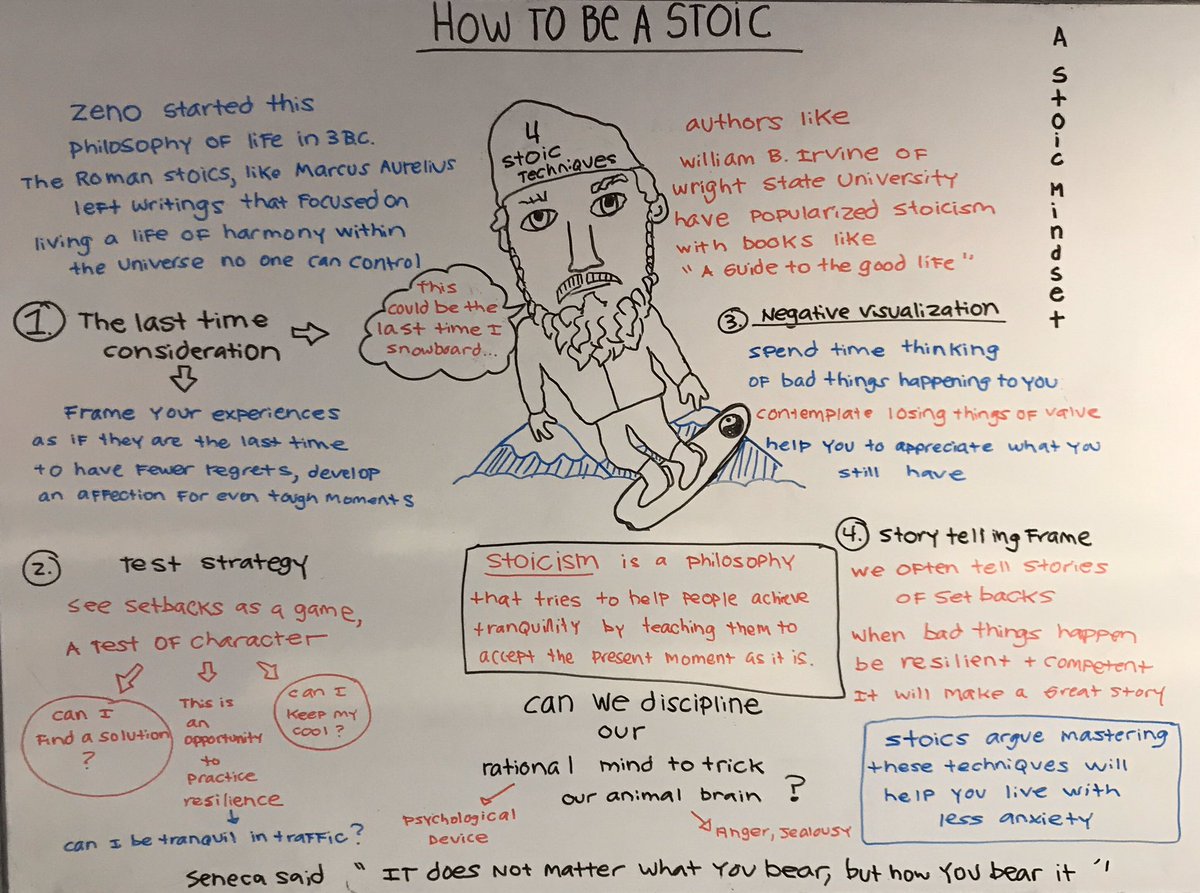 HOW TO BE A STOIC
A Stoic Mindset
Zeno started this
Philosophy of life in 3 B.C.
The Roman Stoics, like Marcus Aurelius
left writings that focused on
living a life of harmony within
the universe no one can control
4
Stoic
Techniques
authors like
William B. Irvine of
Wright State University
have popularized stoicism
with books like
"A Guide to the good life"
1. The last time
consideration
This
could be the
last time I
snowboard...
Frame your experiences
as if they are the last time
to have fewer regrets, develop
an affection for even tough moments
2. Test strategy
See setbacks as a game,
A test of character
can I
find a solution
?
This is
an
opportunity
to
practice
resilience
can I
keep my
cool?
can I be tranquil in traffic?
3. Negative Visualization
spend time thinking
of bad things happening to you
contemplate losing things of value
help you to appreciate what you
still have
4. Story telling Frame
we often tell stories
of set backs
when bad things happen
be resilient + competent
It will make a great story
Stoics argue mastering
these techniques will
help you live with
less anxiety
Stoicism is a philosophy
that tries to help people achieve
tranquility by teaching them to
accept the present moment as it is.
can we discipline
our
rational mind to trick
our animal brain?
Psychological
Device
Anger, Jealousy
Seneca said "It does not matter what you bear, but how you bear it"